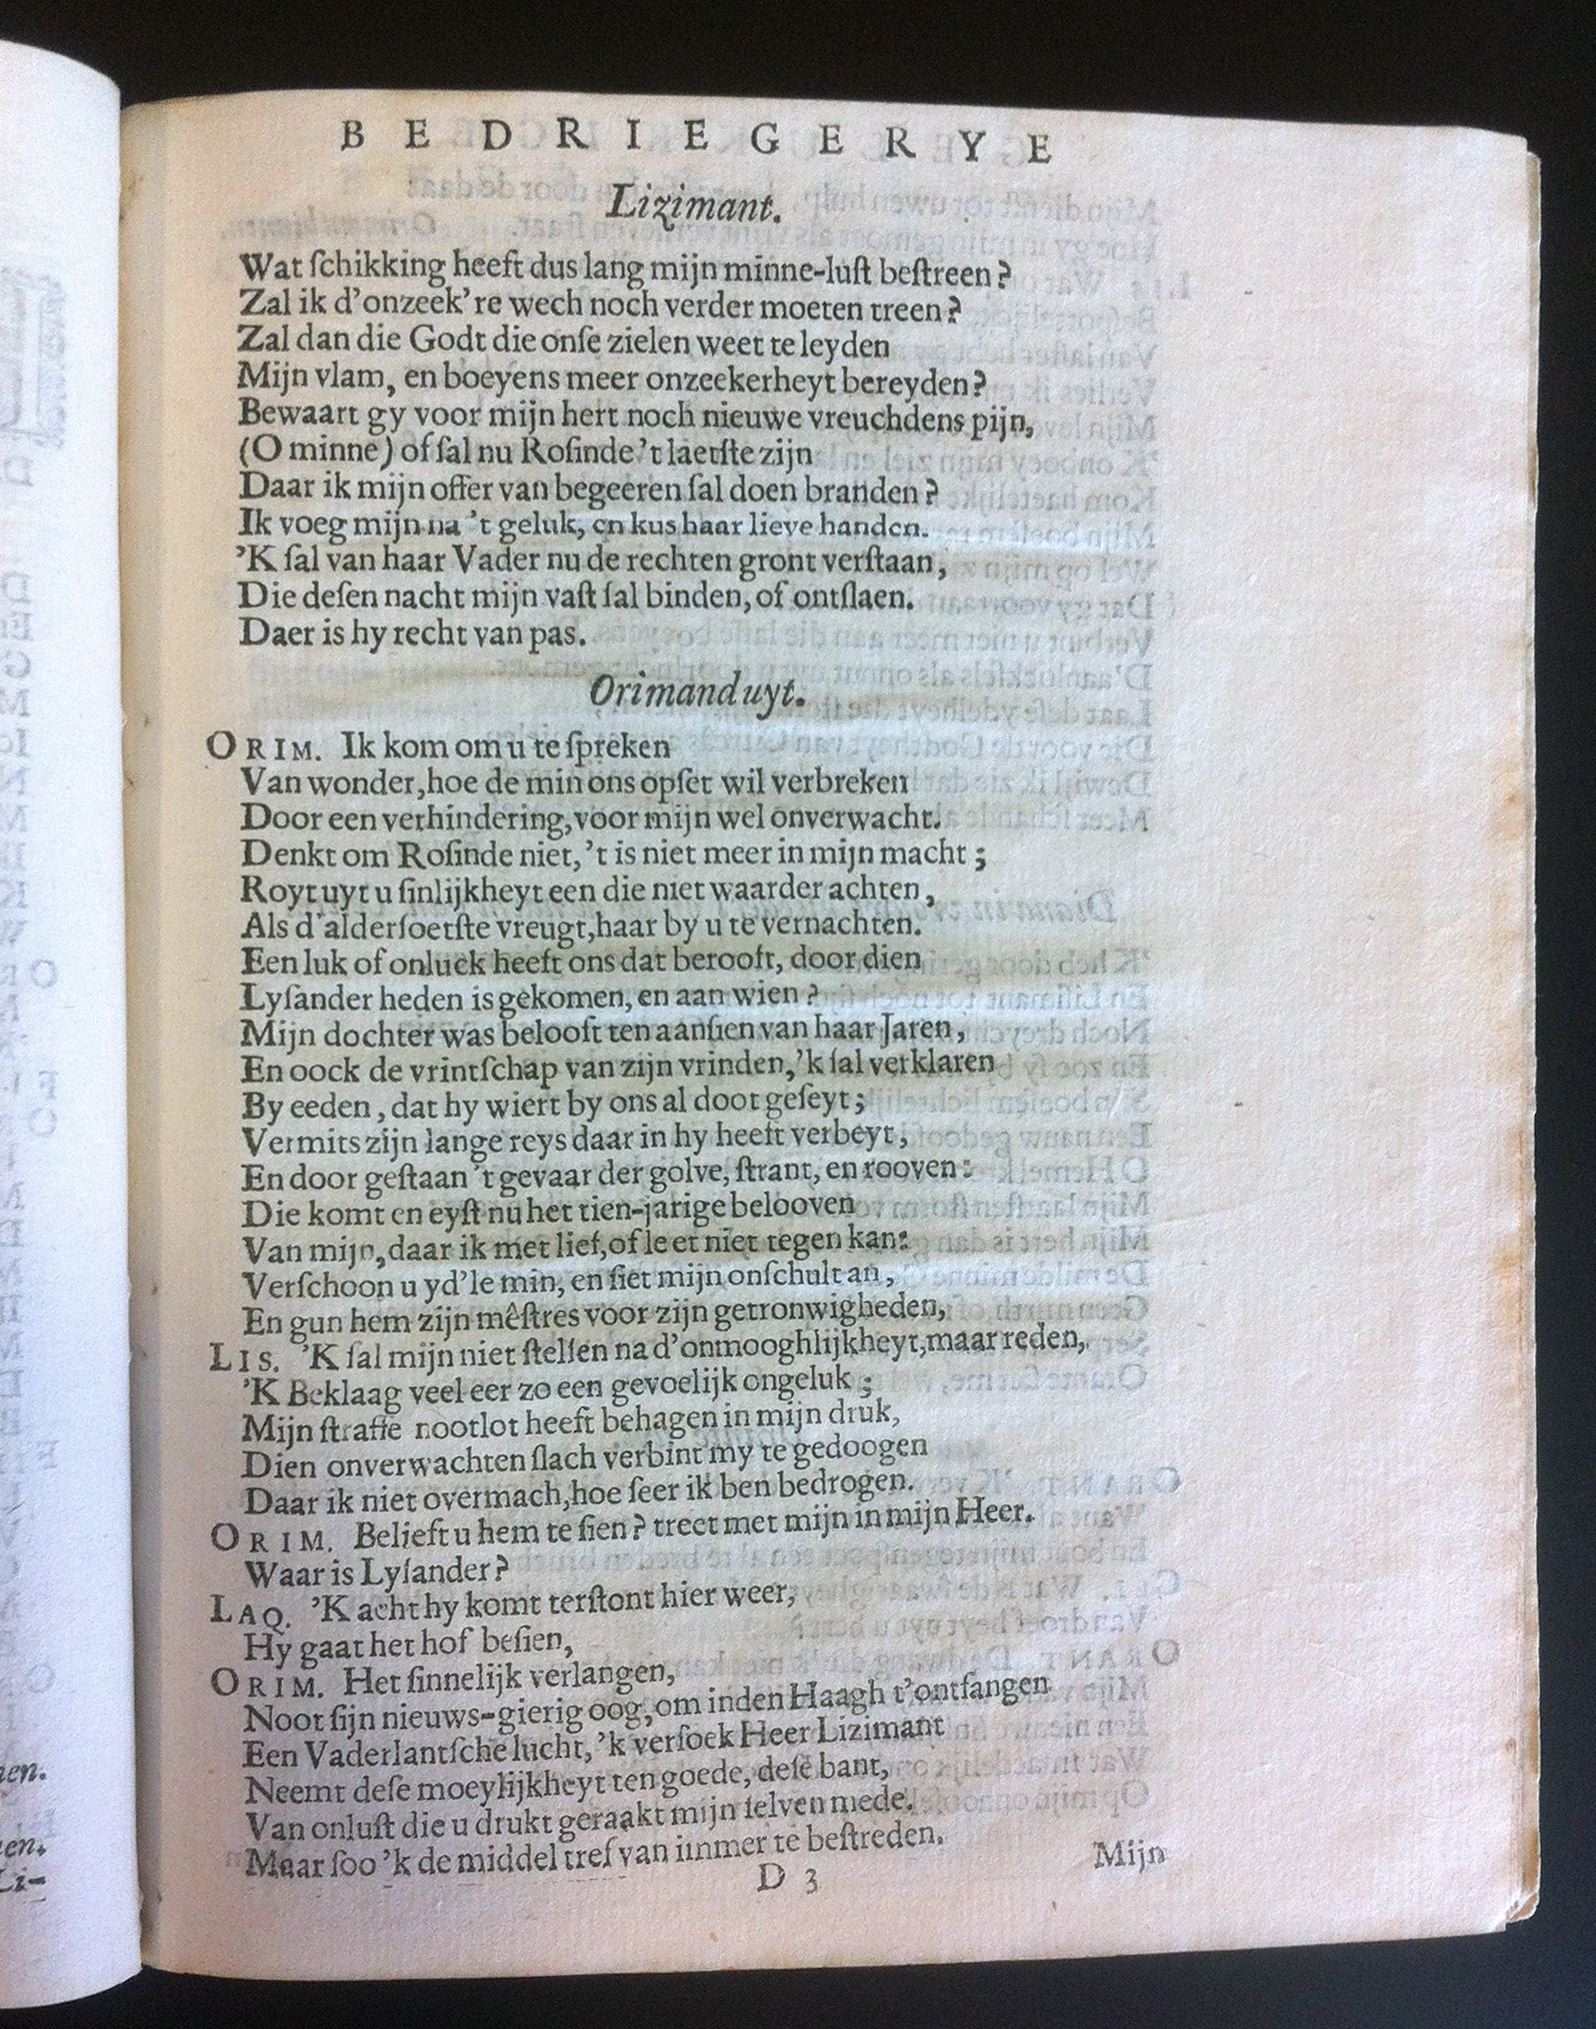 BEDRIEGERYE
Lizimant.
Wat ſchikking heeft dus lang mijn minne-luſt beſtreen?
Zal ik d'onzeek're wech noch verder moeten treen?
Zal dan die Godt die onſe zielen weet te leyden
Mijn vlam, en boeyens meer onzeekerheyt bereyden?
Bewaart gy voor mijn hert noch nieuwe vreuchdens pijn,
(O minne) of ſal nu Roſinde 't laetſte zijn
Daar ik mijn offer van begeeren ſal doen branden?
Ik voeg mijn na 't geluk, en kus haar lieve handen.
'K ſal van haar Vader nu de rechten gront verſtaan,
Die deſen nacht mijn vaſt ſal binden, of ontſlaen.
Daer is hy recht van pas.
Orimand uyt.
ORIM. Ik kom om u te ſpreken
Van wonder, hoe de min ons opſet wil verbreken
Door een verhindering, voor mijn wel onverwacht.
Denkt om Roſinde niet, 't is niet meer in mijn macht;
Royt uyt u ſinlijkheyt een die niet waarder achten,
Als d'alderſoetſte vreugt, haar by u te vernachten.
Een luk of onluck heeft ons dat berooft, door dien
Lyſander heden is gekomen, en aan wien?
Mijn dochter was belooft ten aanſien van haar Jaren,
En oock de vrintſchap van zijn vrinden, 'k ſal verklaren
By eeden, dat hy wiert by ons al doot geſeyt;
Vermits zijn lange reys daar in hy heeft verbeyt,
En door geſtaan 't gevaar der golve, ſtrant, en rooven:
Die komt en eyſt nu het tien-jarige belooven
Van mijn, daar ik met lief, of leet niet tegen kan:
Verſchoon u yd'le min, en ſiet mijn onſchult an,
En gun hem zijn mêſtres voor zijn getronwigheden,
LIS. 'K ſal mijn niet ſtellen na d'onmooghlijkheyt, maar reden,
'K Beklaag veel eer zo een gevoelijk ongeluk;
Mijn ſtraffe nootlot heeft behagen in mijn druk,
Dien onverwachten ſlach verbint my te gedoogen
Daar ik niet overmach, hoe ſeer ik ben bedrogen.
ORIM. Belieft u hem te ſien? treet met mijn in mijn Heer.
Waar is Lyſander?
LAQ. 'K acht hy komt terſtont hier weer,
Hy gaat het hof beſien,
ORIM. Het ſinnelijk verlangen,
Noot ſijn nieuws-gierig oog, om inden Haagh t'ontfangen
Een Vaderlantſche lucht, 'k verſoek Heer Lizimant
Neemt deſe moeylijkheyt ten goede, deſe bant,
Van onluſt die u drukt geraakt mijn ſelven mede.
Maar ſoo 'k de middel tref van immer te beſtreden.
D 3
Mijn